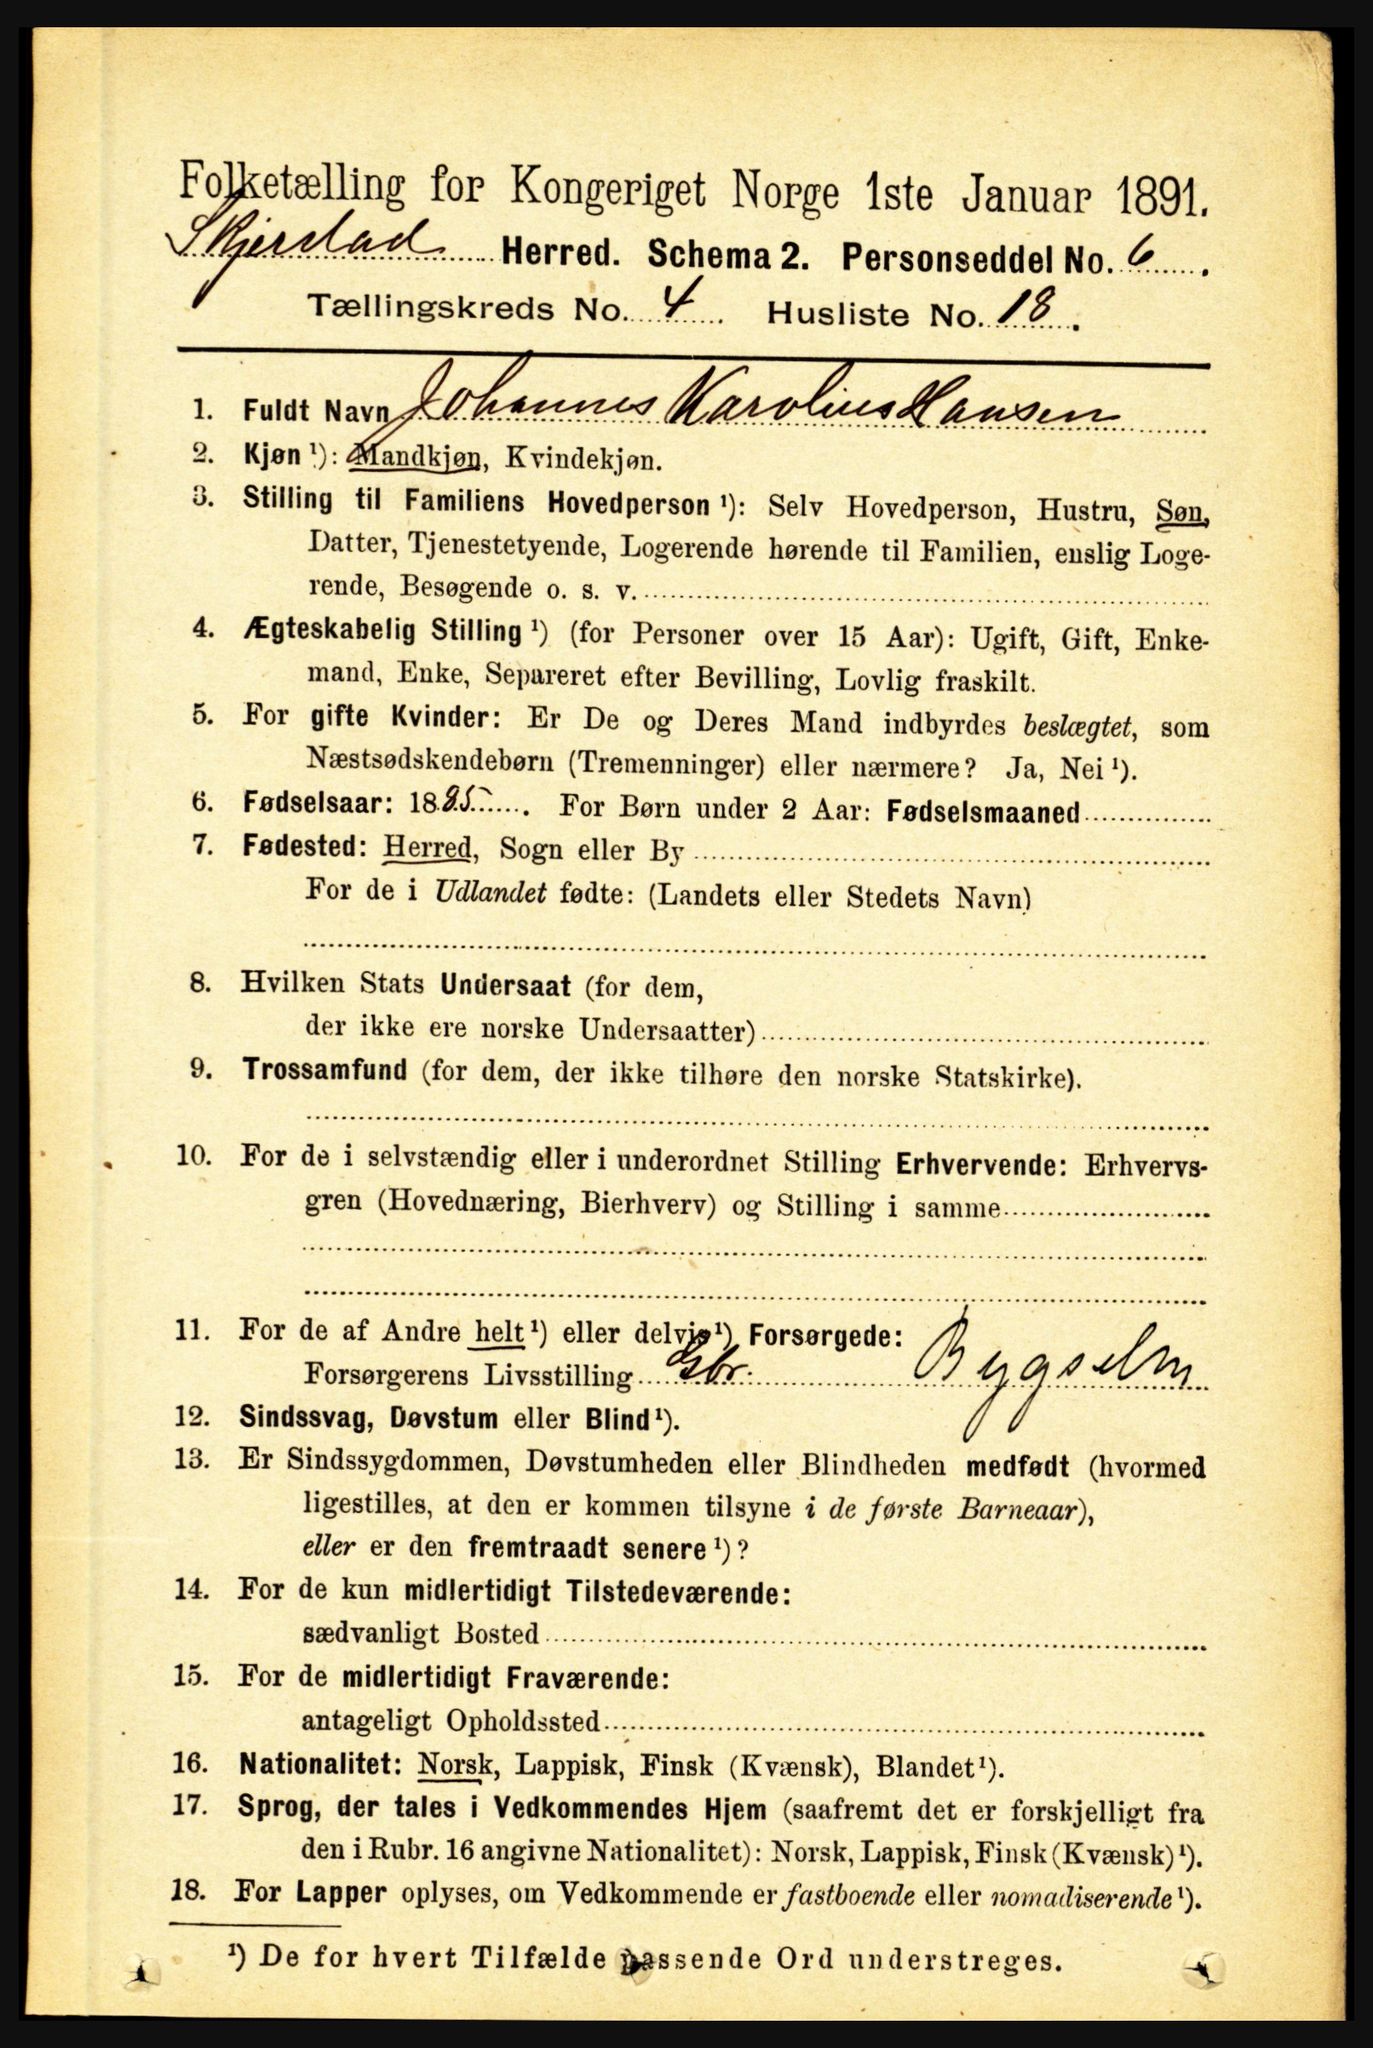 Folketælling for Kongeriget Norge 1ste Januar 1891.
Skjerstad Herred. Schema 2. Personseddel No. 6.
Tællingskreds No. 4. Husliste No. 18.
1. Fuldt Navn Johannes Karolius Hansen
2. Kjøn ¹): Mandkjøn, Kvindekjøn.
3. Stilling til Familiens Hovedperson ¹): Selv Hovedperson, Hustru, Søn,
Datter, Tjenestetyende, Logerende hørende til Familien, enslig Loge-
rende, Besøgende o. s. v.
4. Ægteskabelig Stilling ¹) (for Personer over 15 Aar): Ugift, Gift, Enke-
mand, Enke, Separeret efter Bevilling, Lovlig fraskilt.
5. For gifte Kvinder: Er De og Deres Mand indbyrdes beslægtet, som
Næstsødskendebørn (Tremenninger) eller nærmere? Ja, Nei ¹).
6. Fødselsaar: 1885. For Børn under 2 Aar: Fødselsmaaned
7. Fødested: Herred, Sogn eller By
For de i Udlandet fødte: (Landets eller Stedets Navn)
8. Hvilken Stats Undersaat (for dem,
der ikke ere norske Undersaatter)
9. Trossamfund (for dem, der ikke tilhøre den norske Statskirke).
10. For de i selvstændig eller i underordnet Stilling Erhvervende: Erhvervs-
gren (Hovednæring, Bierhverv) og Stilling i samme
11. For de af Andre helt ¹) eller delvis ¹) Forsørgede:
Forsørgerens Livsstilling Gbr. Bygselm
12. Sindssvag, Døvstum eller Blind ¹).
13. Er Sindssygdommen, Døvstumheden eller Blindheden medfødt (hvormed
ligestilles, at den er kommen tilsyne i de første Barneaar),
eller er den fremtraadt senere ¹)?
14. For de kun midlertidigt Tilstedeværende:
sædvanligt Bosted
15. For de midlertidigt Fraværende:
antageligt Opholdssted
16. Nationalitet: Norsk, Lappisk, Finsk (Kvænsk), Blandet ¹).
17. Sprog, der tales i Vedkommendes Hjem (saafremt det er forskjelligt fra
den i Rubr. 16 angivne Nationalitet): Norsk, Lappisk, Finsk (Kvænsk) ¹).
18. For Lapper oplyses, om Vedkommende er fastboende eller nomadiserende ¹).
¹) De for hvert Tilfælde passende Ord understreges.